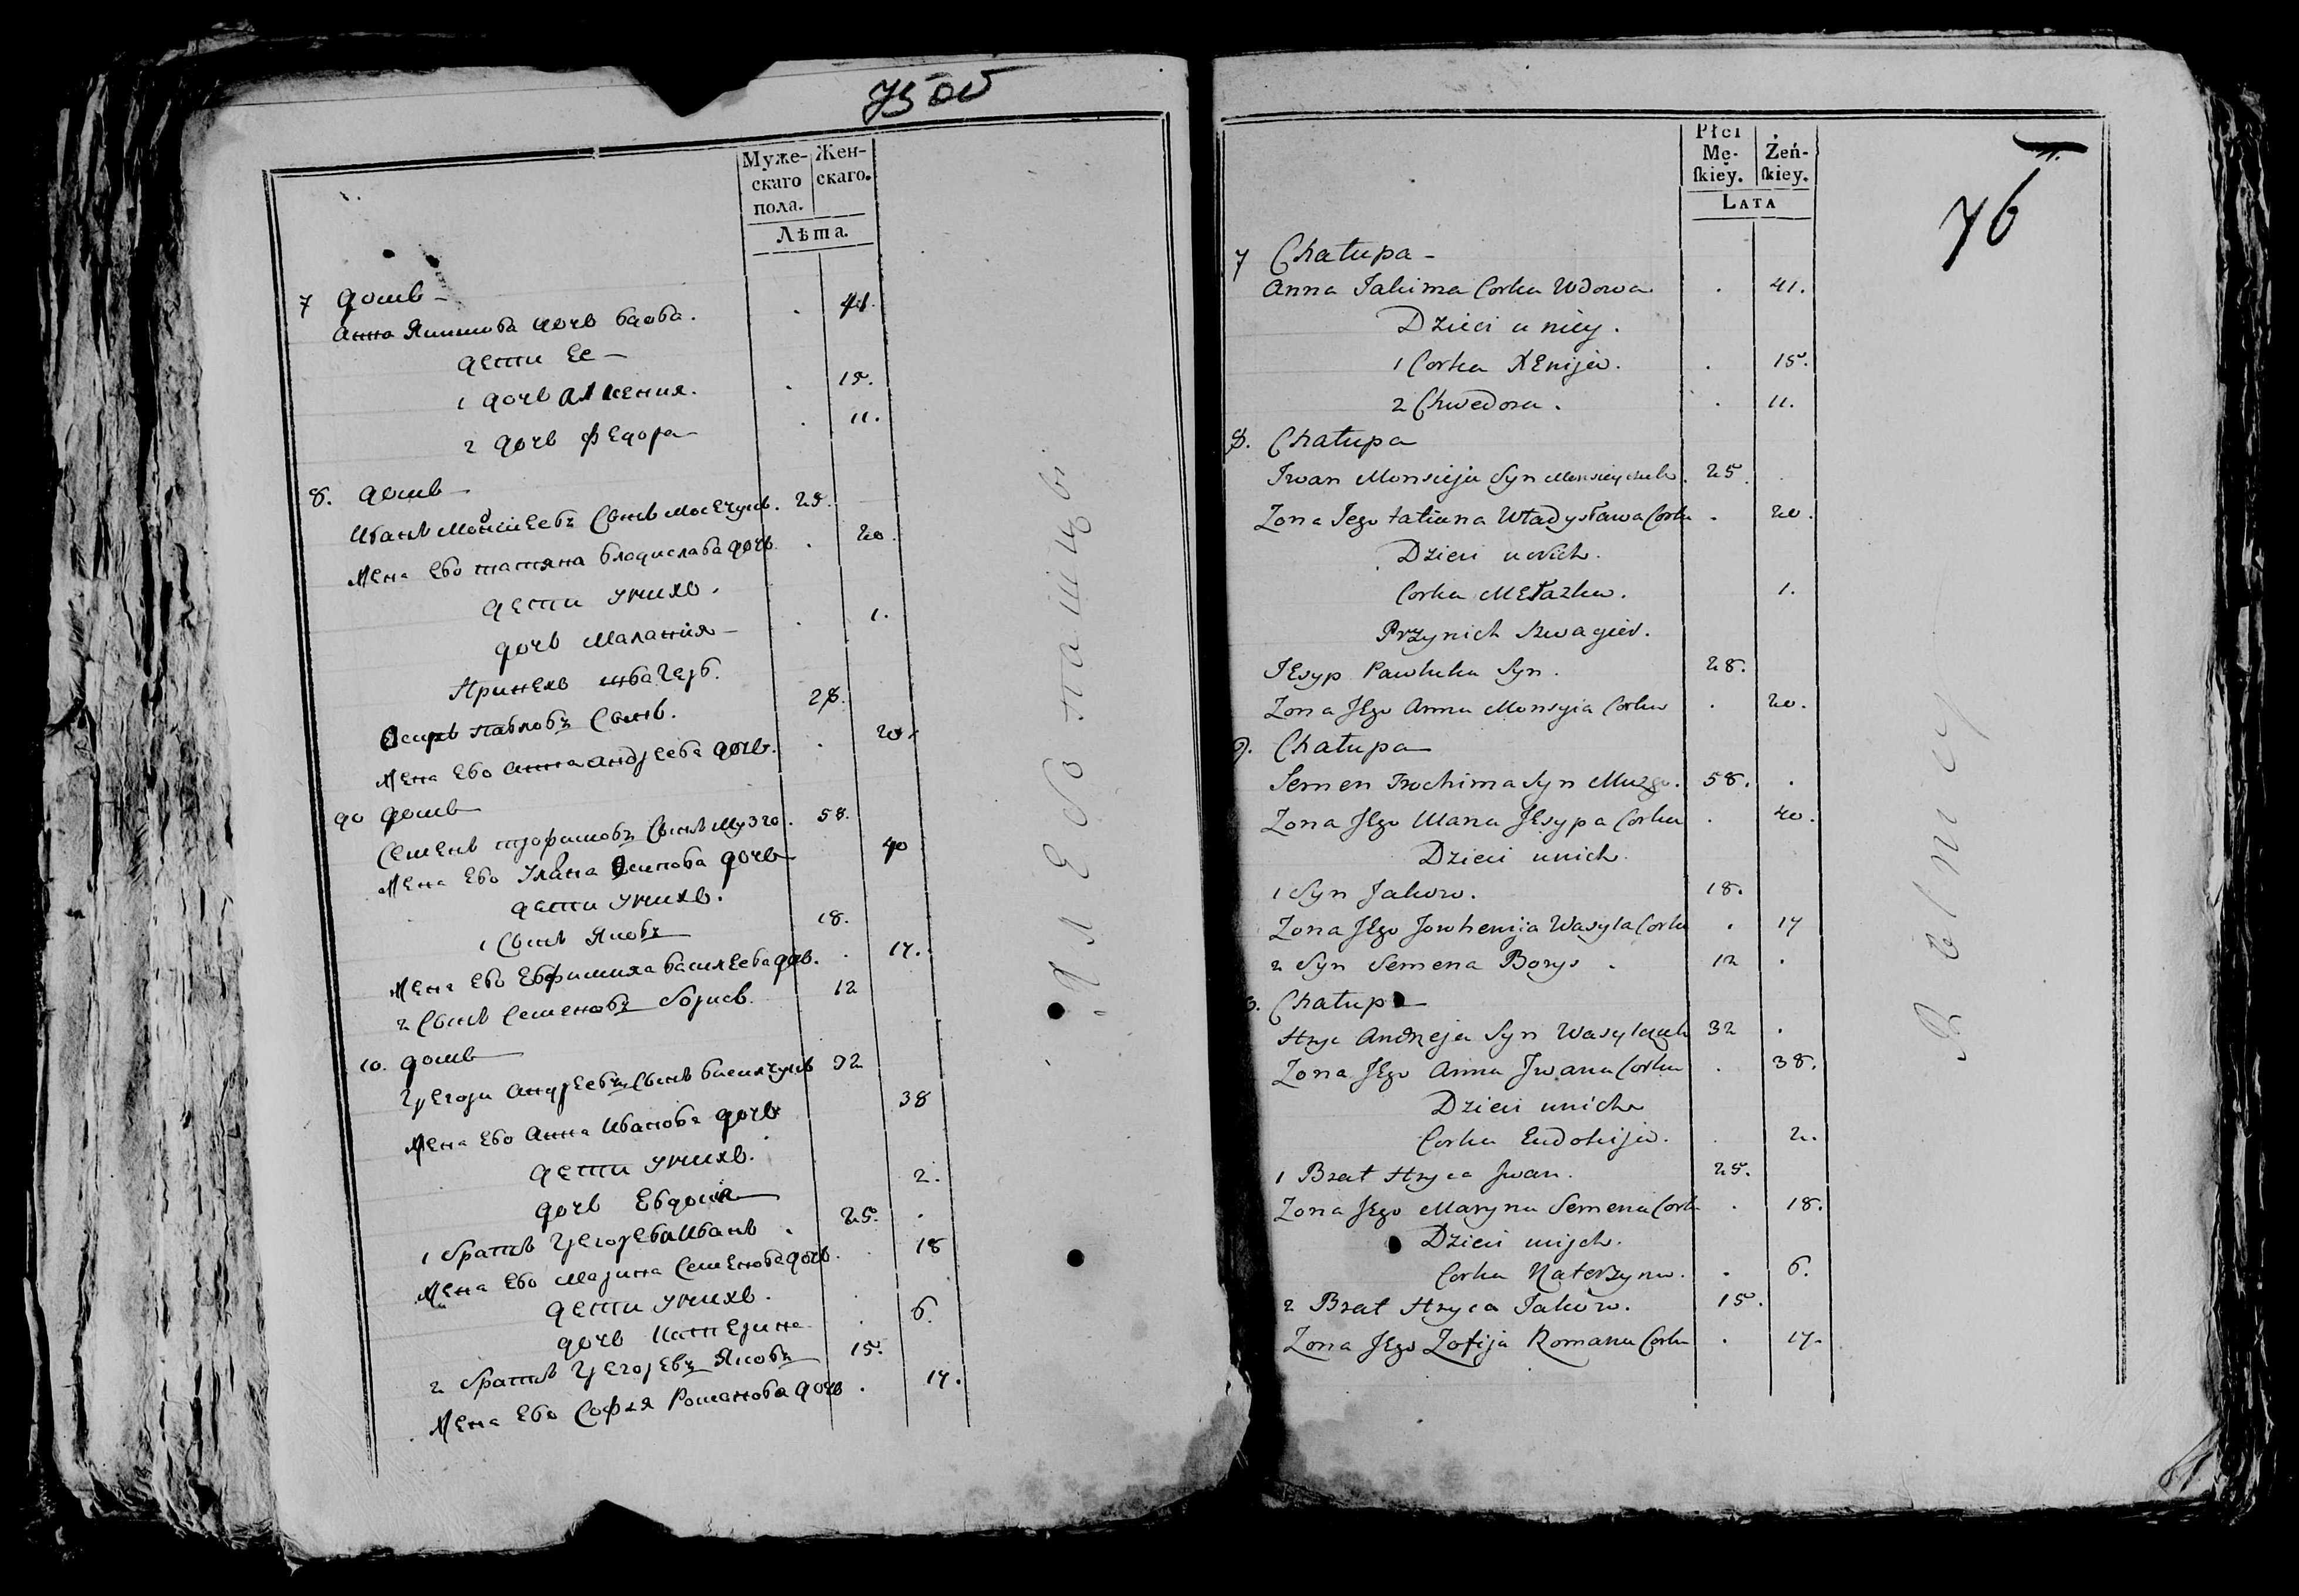 75 об
Муже-
скаго
пола.
Жен-
скаго.
Лѣта.
7 домъ -
Анна Якимова дочь вдова. . 41.
дети ее -
1 дочь Аксения. . 15.
2 дочь Федора . 11.
8. домъ
Иванъ Мойсіевъ сынъ Мосечукъ. 25.
Жена ево татяна владислава дочь . 20.
дети унихъ.
дочь Малания . 1.
Принехъ швагеръ.
Осипъ Павловъ сынъ. 28.
Жена ево Анна Андреева дочь. . 20.
9 домъ
Семенъ трофимовъ сынъ Музго. 58.
Жена ево Уляна Осипова дочь 40
дети унихъ.
1 сынъ Яковъ 18.
Жена ево Евфимия васильева дочь. . 17.
2 сынъ семеновъ борисъ. 12
10. домъ
Грегори Андреевъ сынъ василчукъ 32
Жена ево Анна Иванова дочь 38
дети унихъ.
дочь Евдокия 2.
1 братъ Грегорева Иванъ . 25. .
Жена ево Марина Семенова дочь. . 18
дети унихъ.
дочь катерина . 6.
2 братъ Грегоревъ Яковъ 15.
Жена ево Софья Романова дочь . 17.
76
Płci
Mę-
skiey.
Żeń-
skiey.
LATA
7 Chałupa -
Anna Jakima Corka Wdowa . 41.
Dzieci u niey.
1 Corka Xenija. . 15.
2 Chwedora. . 11.
8. Chałupa
Iwan Monsieja Syn Monsieychuk. 25. .
Zona Jego tatiana Władysława Corka . 20.
Dzieci u nich.
Corka Mełazka. 1.
Przynich szwagier.
JEsyp Pawluka Syn. 28.
Zona JEgo Anna Monsyia Corka . 20.
9. Chałupa
Semen Trochima Syn Muzgo. 58. .
Zona JEgo Ulana JEsypa Corka . 40.
Dzieci unich.
1 Syn Jakow. 18.
Zona JEgo Jowhenija Wasyla Corka . 17
2 Syn Semena Borys . 12 .
Chałupa
Hryc Andrzeja Syn Wasylczuk 32 .
Zona JEgo Anna Jwana Corka . 38.
Dzieci unich
Corka Eudokija. . 2.
1 Brat Hryca Jwan. 25.
Zona JEgo Maryna Semena Corka . 18.
Dzieci unych.
Corka Katerzyna. . 6.
2 Brat Hryca Jakow. 15.
Zona JEgo Zofija Romana Corka . 17.